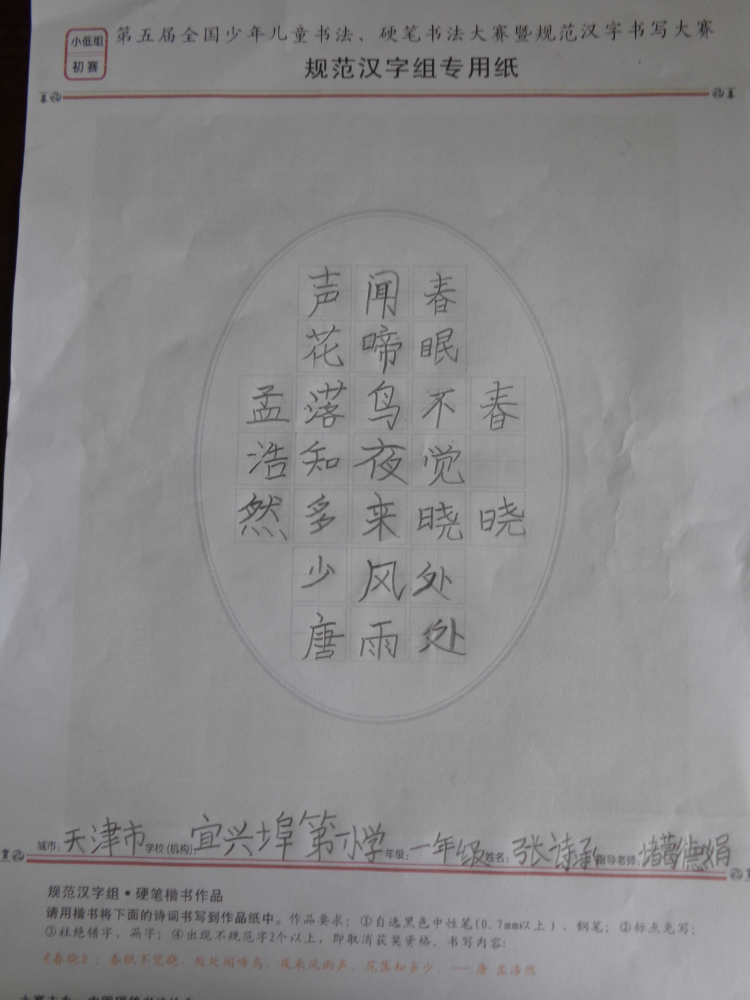 小低组
初赛
第五届全国少年儿童书法、硬笔书法大赛暨规范汉字书写大赛
规范汉字组专用纸
春晓
春眠不觉晓处处
闻啼鸟夜来风雨
声花落知多少唐
孟浩然
城市:天津市学校(机构):宜兴埠第一小学年级:一年级姓名:张诗承指导老师:
规范汉字组·硬笔楷书作品
请用楷书将下面的诗词书写到作品纸中。作品要求:①自选黑色中性笔(0.7mm以上)、钢笔;②标点免写;
③杜绝错字、漏字;④出现不规范字2个以上,即取消获奖资格。书写内容:
《春晓》:春眠不觉晓,处处闻啼鸟。夜来风雨声,花落知多少。——唐 孟浩然